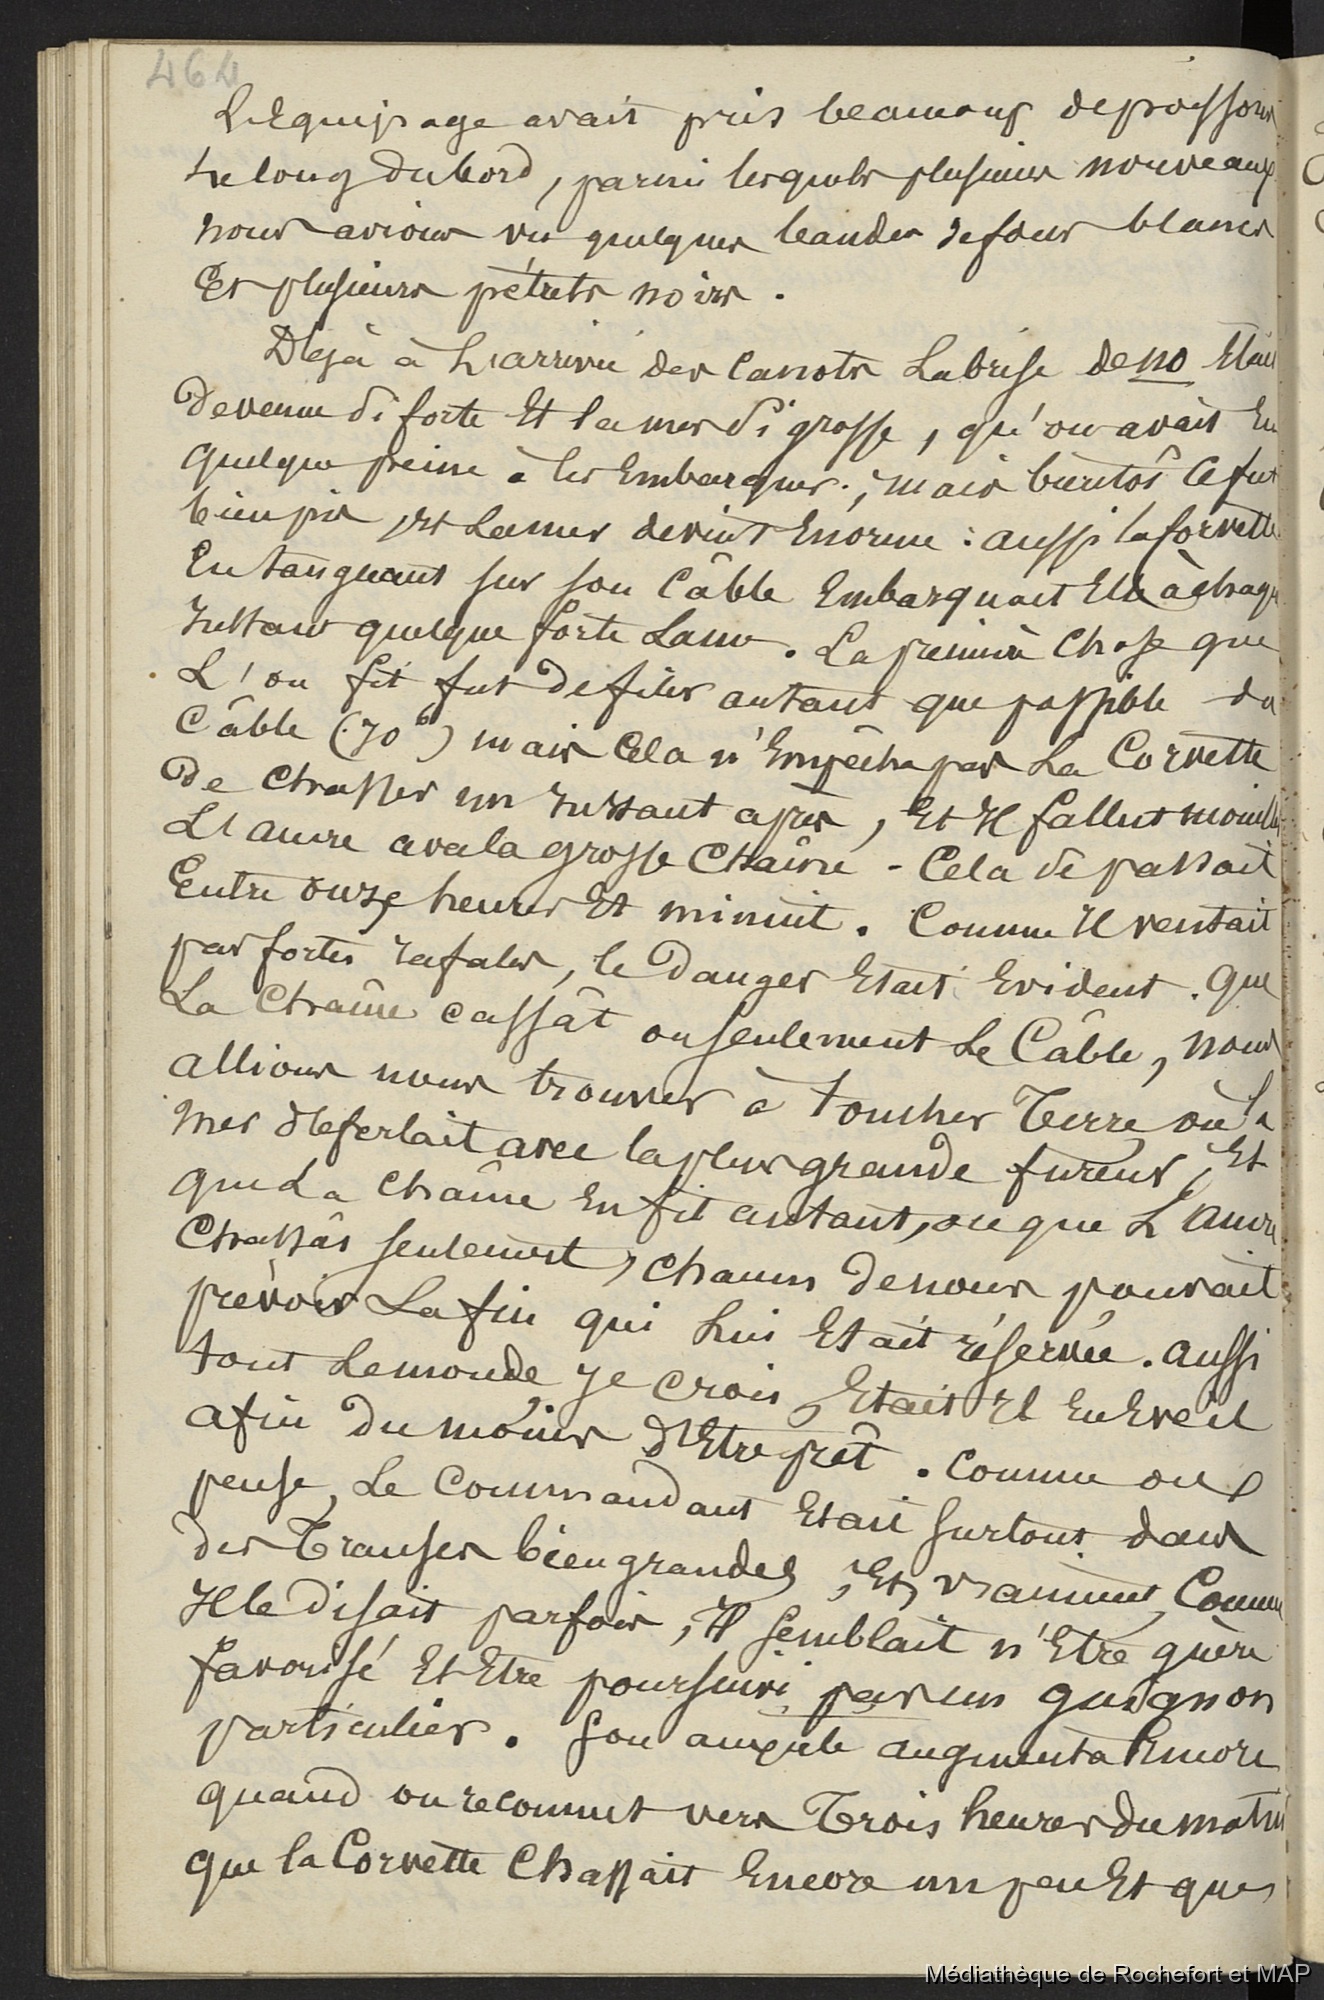 464
L'Equipage avait pris beaucoup de poissons
Le long du bord, parmi lesquels plusieurs nouveaux
nous avions vu quelques bandes de fous blancs
Et plusieurs pétrels noirs.
Déjà à L'arrivée des Canots La brise de no Etait
devenue si forte Et la mer si grosse, qu'on avait Eu
quelque peine à les Embarquer; mais bientôt Ce fut
bien pis, Et La mer devint Enorme: aussi la Corvette
En tanguant sur son Câble Embarquait Elle à chaque
Instant quelque forte Lame. La première Chose que
L'on fit fut de filer autant que possible du
Câble (70 b) mais Cela n'Empêcha pas La Corvette
de Chasser un Instant après, Et Il fallut mouiller
L'ancre avec la grosse Chaîne - Cela se passait
Entre onze heures Et minuit. Comme Il ventait
par fortes rafales, le Danger Etait Evident. Que
La Chaîne cassât ou seulement Le Câble, nous
allions nous trouver à toucher Terre où la
mer déferlait avec la plus grande fureur, Et
que La Chaîne En fit autant, ou que L'ancre
Chassât seulement, chacun de nous pouvait
prévoir La fin qui Lui Etait réservée. aussi
tout Le monde, Je crois, Etait Il En Eveil
afin du moins d'Etre prêt. Comme on
pense, Le Commandant Etait surtout dans
des Transes bien grandes, Et, vraiment, Comme
Il le disait parfois, Il semblait n'Etre guère
favorisé Et Etre poursuivi par un guignon
particulier. Son anxiété augmenta Encore
quand on reconnut vers Trois heures du matin
que la Corvette Chassait Encore un peu Et que
Médiathèque de Rochefort et MAP